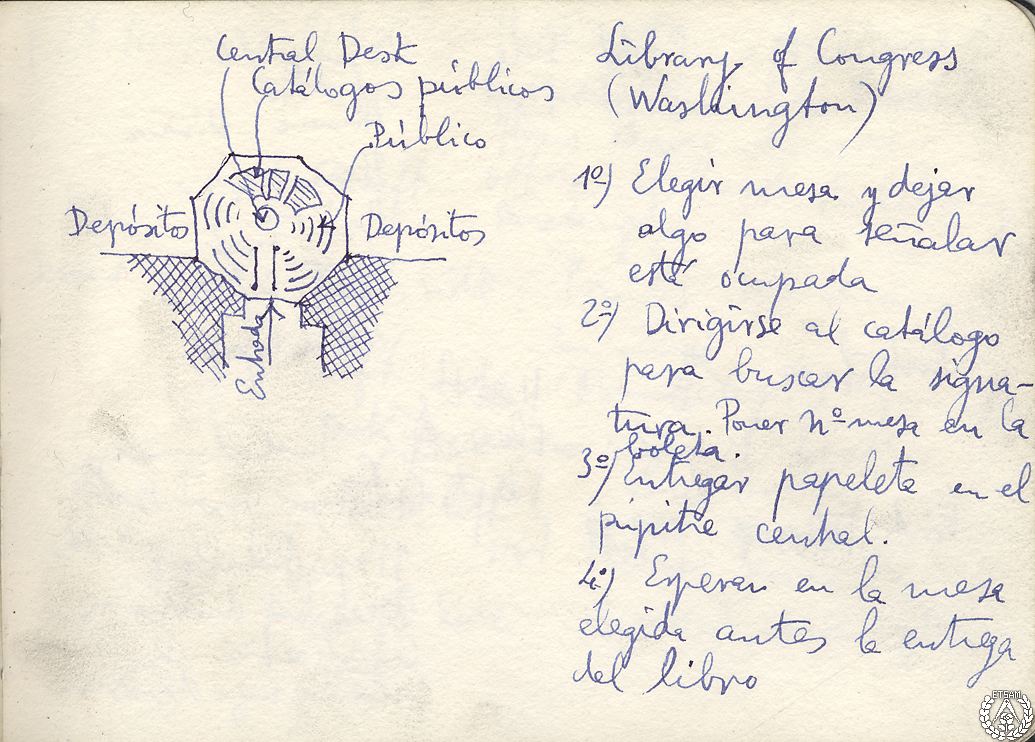 Central Desk
Catálogos públicos
Público
Depósitos
Depósitos
Entrada
Library of Congress
(Washington)
1º) Elegir mesa y dejar
algo para señalar
está ocupada
2º) Dirigirse al catálogo
para buscar la signa-
tura. Poner nº mesa en la
boleta.
3º) Entregar papeleta en el
pupitre central.
4º) Esperar en la mesa
elegida antes la entrega
del libro
ETSAM